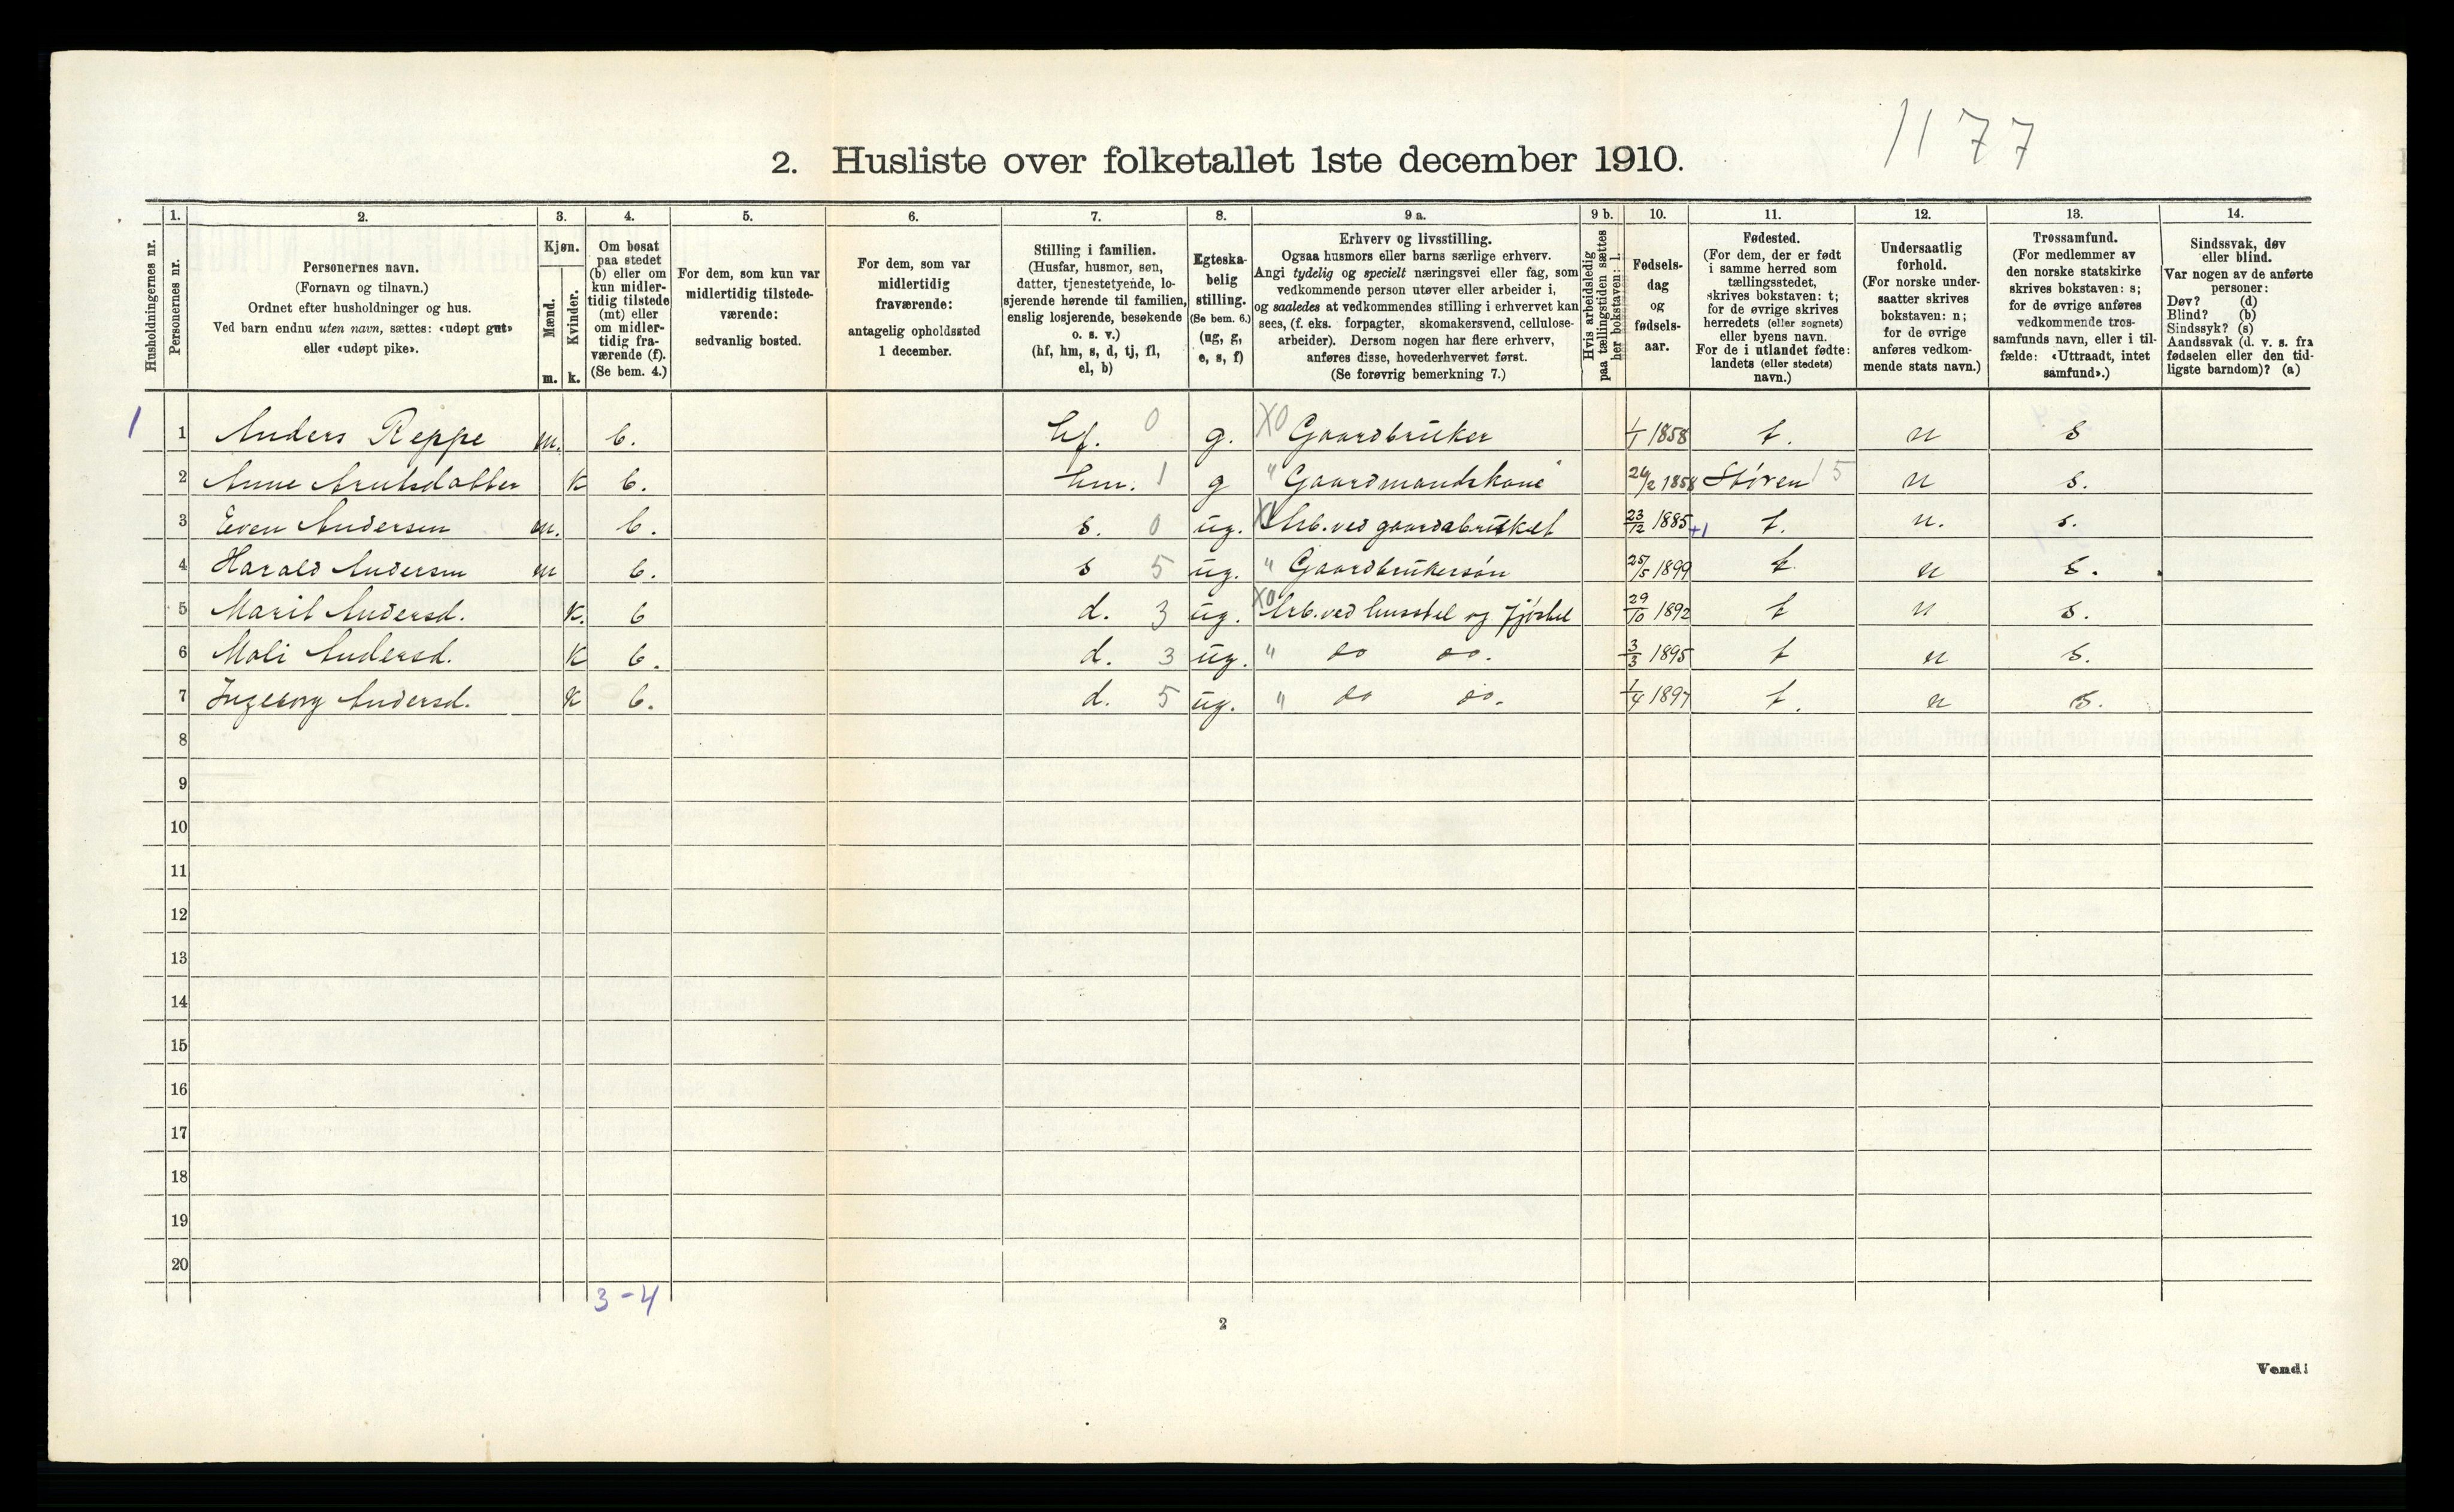 1177
2. Husliste over folketallet 1ste december 1910.
Husholdningernes nr.
1. Personernes nr.
2. Personernes navn. (Fornavn og tilnavn.) Ordnet efter husholdninger og hus. Ved barn endnu uten navn, sættes: «udøpt gut» eller «udøpt pike».
3. Kjøn. Mænd. m. Kvinder. k.
4. Om bosat paa stedet (b) eller om kun midlertidig tilstede (mt) eller om midlertidig fraværende (f). (Se bem. 4.)
5. For dem, som kun var midlertidig tilstedeværende: sedvanlig bosted.
6. For dem, som var midlertidig fraværende: antagelig opholdssted 1 december.
7. Stilling i familien. (Husfar, husmor, søn, datter, tjenestetyende, losjerende hørende til familien, enslig losjerende, besøkende o. s. v.) (hf, hm, s, d, tj, fl, el, b)
8. Egteskabelig stilling. (Se bem. 6.) (ug, g, e, s, f)
9 a. Erhverv og livsstilling. Ogsaa husmors eller barns særlige erhverv. Angi tydelig og specielt næringsvei eller fag, som vedkommende person utøver eller arbeider i, og saaledes at vedkommendes stilling i erhvervet kan sees, (f. eks. forpagter, skomakersvend, cellulosearbeider). Dersom nogen har flere erhverv, anføres disse, hovederhvervet først. (Se forøvrig bemerkning 7.)
9 b. Hvis arbeidsledig paa tællingstiden sættes her bokstaven: l.
10. Fødselsdag og fødselsaar.
11. Fødested. (For dem, der er født i samme herred som tællingsstedet, skrives bokstaven: t; for de øvrige skrives herredets (eller sognets) eller byens navn. For de i utlandet fødte: landets (eller stedets) navn.)
12. Undersaatlig forhold. (For norske undersaatter skrives bokstaven: n; for de øvrige anføres vedkommende stats navn.)
13. Trossamfund. (For medlemmer av den norske statskirke skrives bokstaven: s; for de øvrige anføres vedkommende trossamfunds navn, eller i tilfælde: «Uttraadt, intet samfund».)
14. Sindssvak, døv eller blind. Var nogen av de anførte personer: Døv? (d) Blind? (b) Sindssyk? (s) Aandssvak (d. v. s. fra fødselen eller den tidligste barndom)? (a)
1 1 Anders Reppe m. b. hf. 0 g. X0 Gaardbruker 1/1 1858 t. n s
2 Anne Arntsdatter k b. hm. 1 g " Gaardmandskone 24/2 1858 Støren 15 n s.
3 Even Andersen m. b. s. 0 ug. Arb. ved gaardsbruket 23/12 1885 +1 t. n. s.
4 Harald Andersen m b. s 5 ug. " Gaardbrukersøn 25/5 1899 t n s.
5 Marit Andersd. k. b d. 3 ug. X0 Arb. ved husstel og fjøsstel 29/10 1892 t n s.
6 Mali Andersd. k b. d. 3 ug. " do do. 3/3 1895 t n s.
7 Ingeborg Andersd. k b. d. 5 ug. " do do. 1/4 1897 t. n s.
8
9
10
11
12
13
14
15
16
17
18
19
20
3-4
2
Vend!